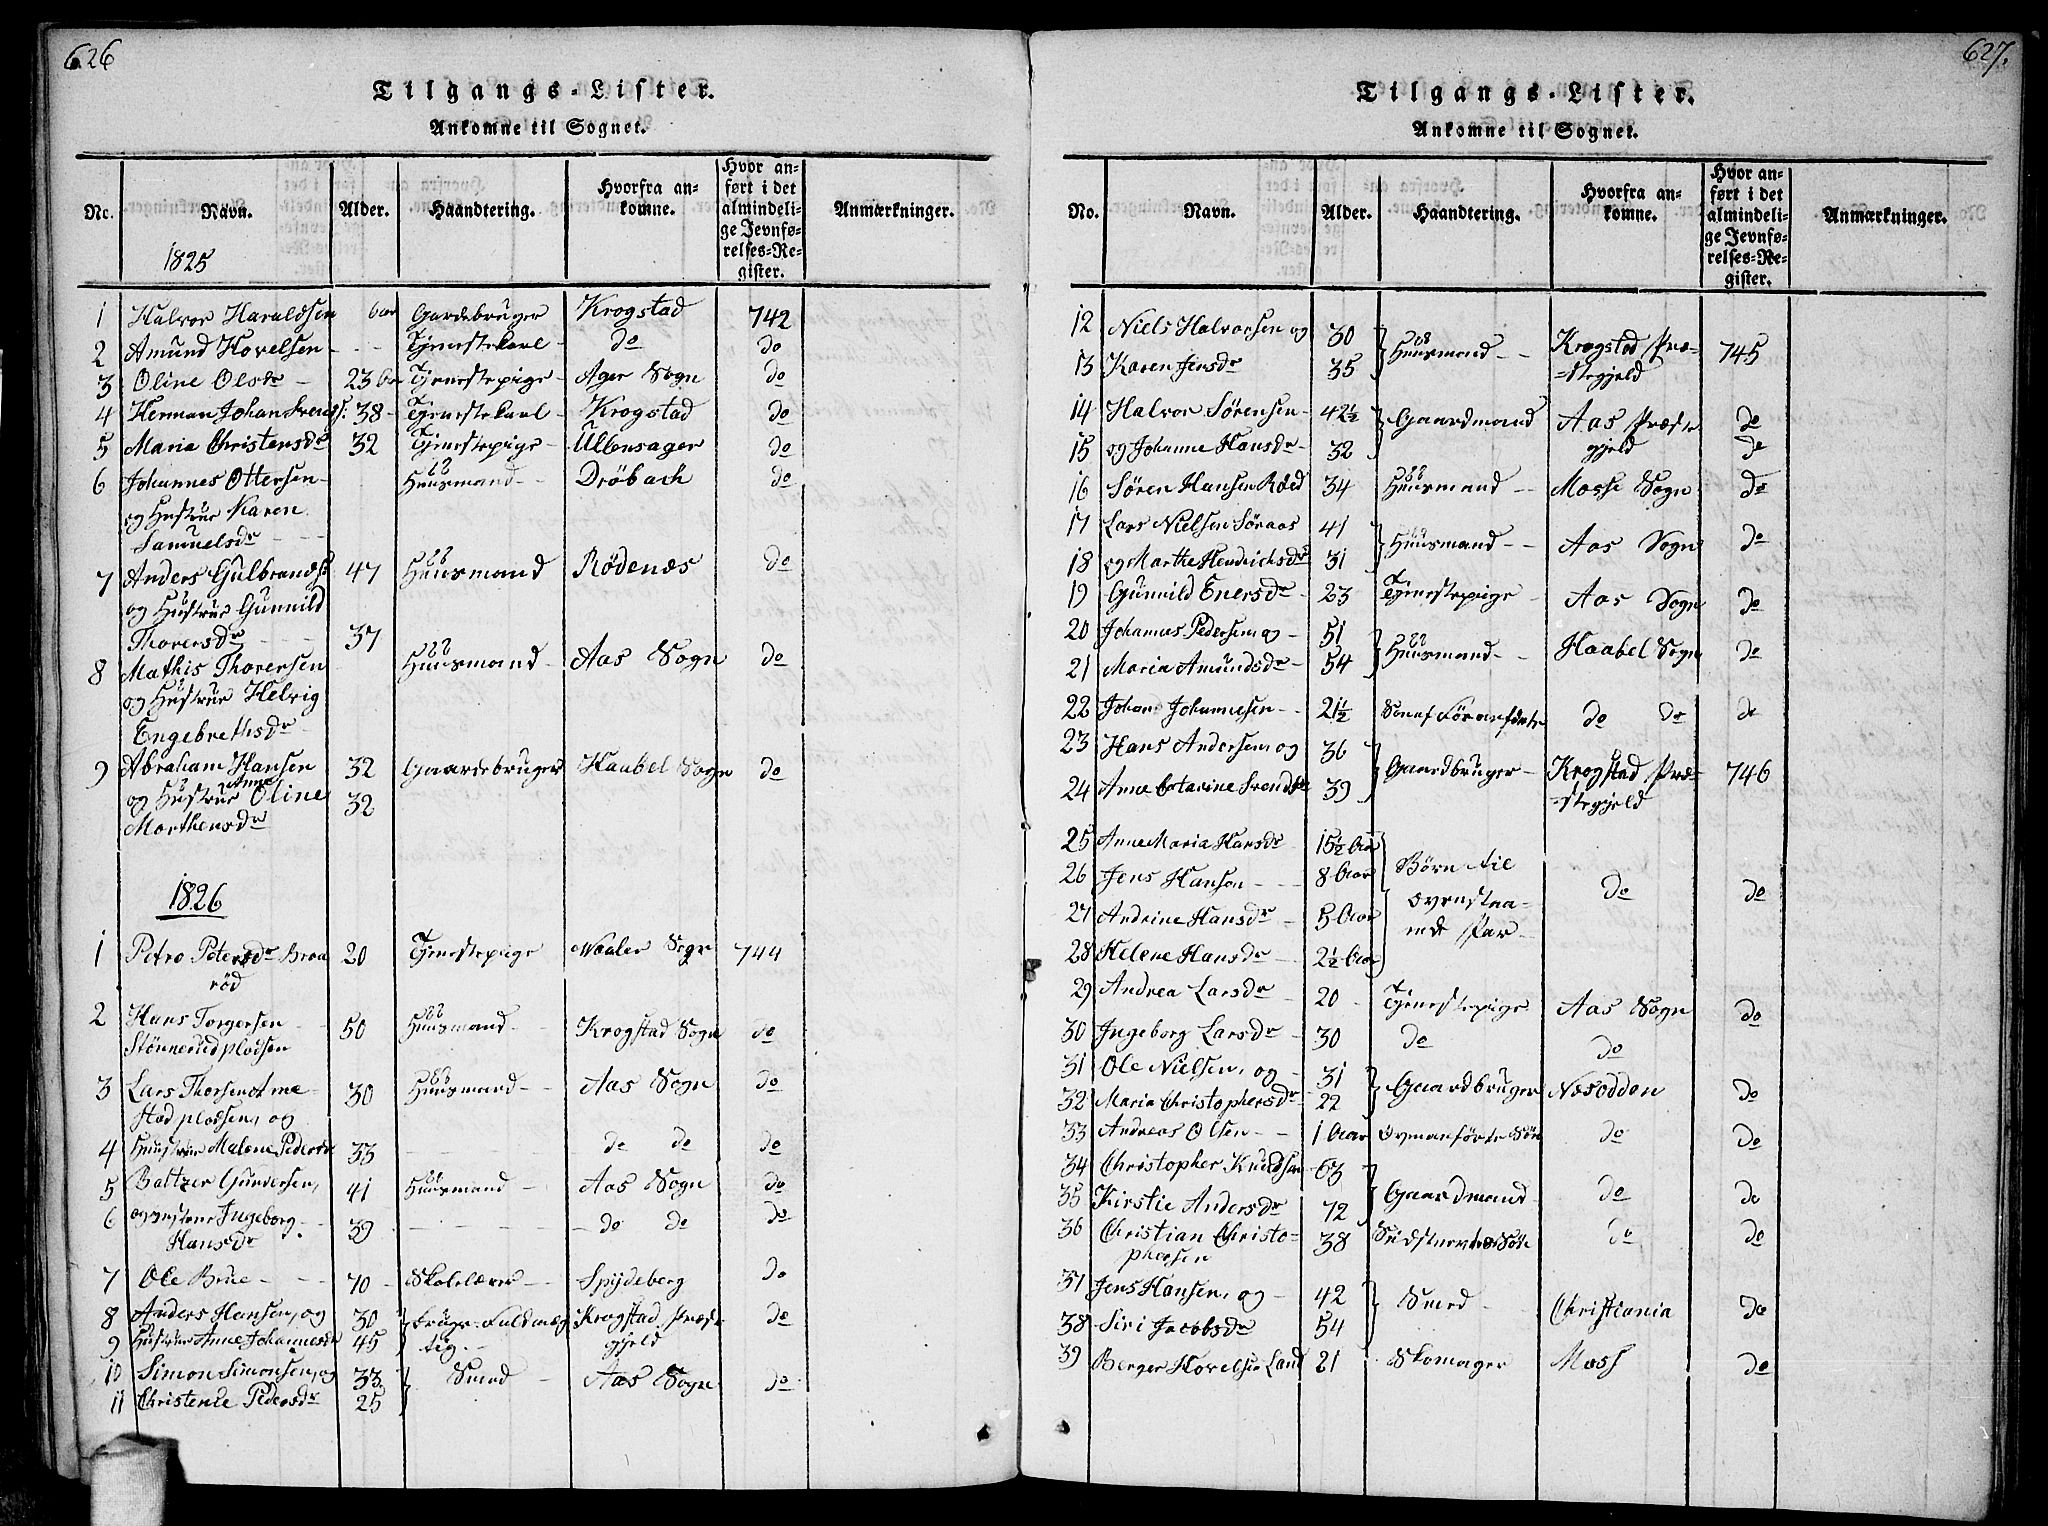 626
Tilgangs-Lister.
Ankomne til Sognet.
No. Navn. Alder. Haandtering. Hvorfra an-komne. Hvor an-ført i det almindeli-ge Jevnfø-relses-Re-gister. Anmærkninger.
1825
1 Halvor Haraldsen Gardebruger Krogstad 742
2 Amund Hovelsen - - - Tjenestekarl - do do
3 Oline Olsdr - 23 Tjenestepige - Ager Sogn do
4 Herman Johan Svends: 38 - Tjenestekarl - Krogstad do
5 Maria Christensdr 32 Tjenestepige - Ullensager do
6 Johannes Ottersen - Huusmand - - Dröbach do
og Hustrue Karen
Samuelsdr - - -
7 Anders Gulbrands: 47 Huusmand Rödenæs do
og Hustrue Gunnild
Thorersdr - - - 37
8 Mathis Thorersen Huusmand - Aas Sogn do
og Hustrue Helvig
Engebrethsdr -
9 Abraham Hansen 32 Gaardebruger Haabel Sogn do
og Hustrue Anne Oline 32
Morthensdr
1826
1 Petro Petersdr Braa 20 Tjenestepige Waaler Sogn 744
röd
2 Hans Torgersen - 50 Huusmand - - Krogstad Sogn do
Stönnerudplodsen
3 Lars Thorsen 30 Huusmand - - Aas Sogn do
stad plodsen, og
4 Huustrue Malene Peders 33 - - - do do do
5 Baltzer Gundersen, 41 Huusmand - Aas Sogn do
6 Ingeborg - 39 - - - - do do do
Hansdr
7 Ole Brue - - - 70 - Skolelærer - - Spydeberg do
8 Anders Hansen, og 30 Krogstad Præste do
9 Hustrue Anne Johannesdr 45 tig. - gjeld
10 Simon Simonsen, og 33 Smed - Aas Sogn do
11 Christence Pedersdr 25
627.
Tilgangs-Lister.
Ankomne til Sognet.
No. Navn. Alder. Haandtering. Hvorfra an-komne. Hvor an-ført i det almindeli-ge Jevnfø-relses-Re-gister. Anmærkninger.
12 Niels Halvorsen og 30 Huusmand - - Krogstad Præ- 745
13 Karen Jensdr 35 =stegjeld
14 Halvor Sörensen - 42½ Gaardmand Aas Præste do
15 og Johanne Hansdr - 32 gjeld do
16 Sören Hansen Röed 34 Huusmand - - Mosse Sogn do
17 Lars Nielsen Söraas 41 Huusmand - - Aas Sogn do
18 og Marthe Hendrichsdr 31
19 Gunnild Enersdr - 23 Tjenestepige - Aas Sogn do
20 Johannes Pedersen og - 51 Huusmand - - Haabel Sogn do
21 Maria Amundsdr - 54
22 Johan Johannesen - - 21½ do do do
23 Hans Andersen og 36 Gaardbruger - Krogstad Præ- 746
24 Anne Catarine Svendsdr 39 =stegjeld
25 Anne Maria Hansdr - 15½ Aar Börn til
26 Jens Hansen - - - 8 Aar ovenstaa- do do
27 Andrine Hansdr - 5 Aar ende Par -
28 Helene Hansdr - - 2½ Aar
29 Andrea Larsdr - 20 - Tjenestepige Aas Sogn do
30 Ingeborg Larsdr - 30 do do
31 Ole Nielsen, og - 31 Gaardbruger Nesodden do
32 Maria Christophersdr - 22
33 Andreas Olsen - - 1 Aar do do
34 Christopher Knudsen 63 Gaardmand do do
35 Kirstie Andersdr 72
36 Christian Christo- 38 do do
phersen
37 Jens Hansen, og - 42 Smed - Christiania do
38 Siri Jacobsdr 54
39 Berger Hovelsen Land 21 Skomager Moss do